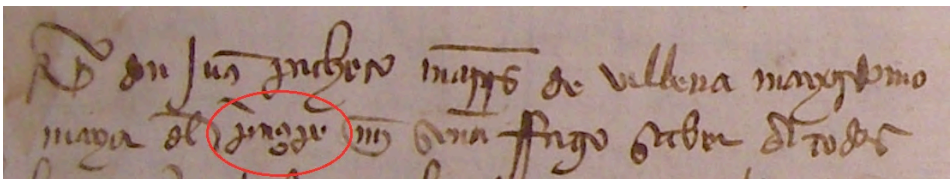 Yo don Juã pacheco marqs de villena mayordomo
mayor dl prinçipe mj señor Fago saber a todos